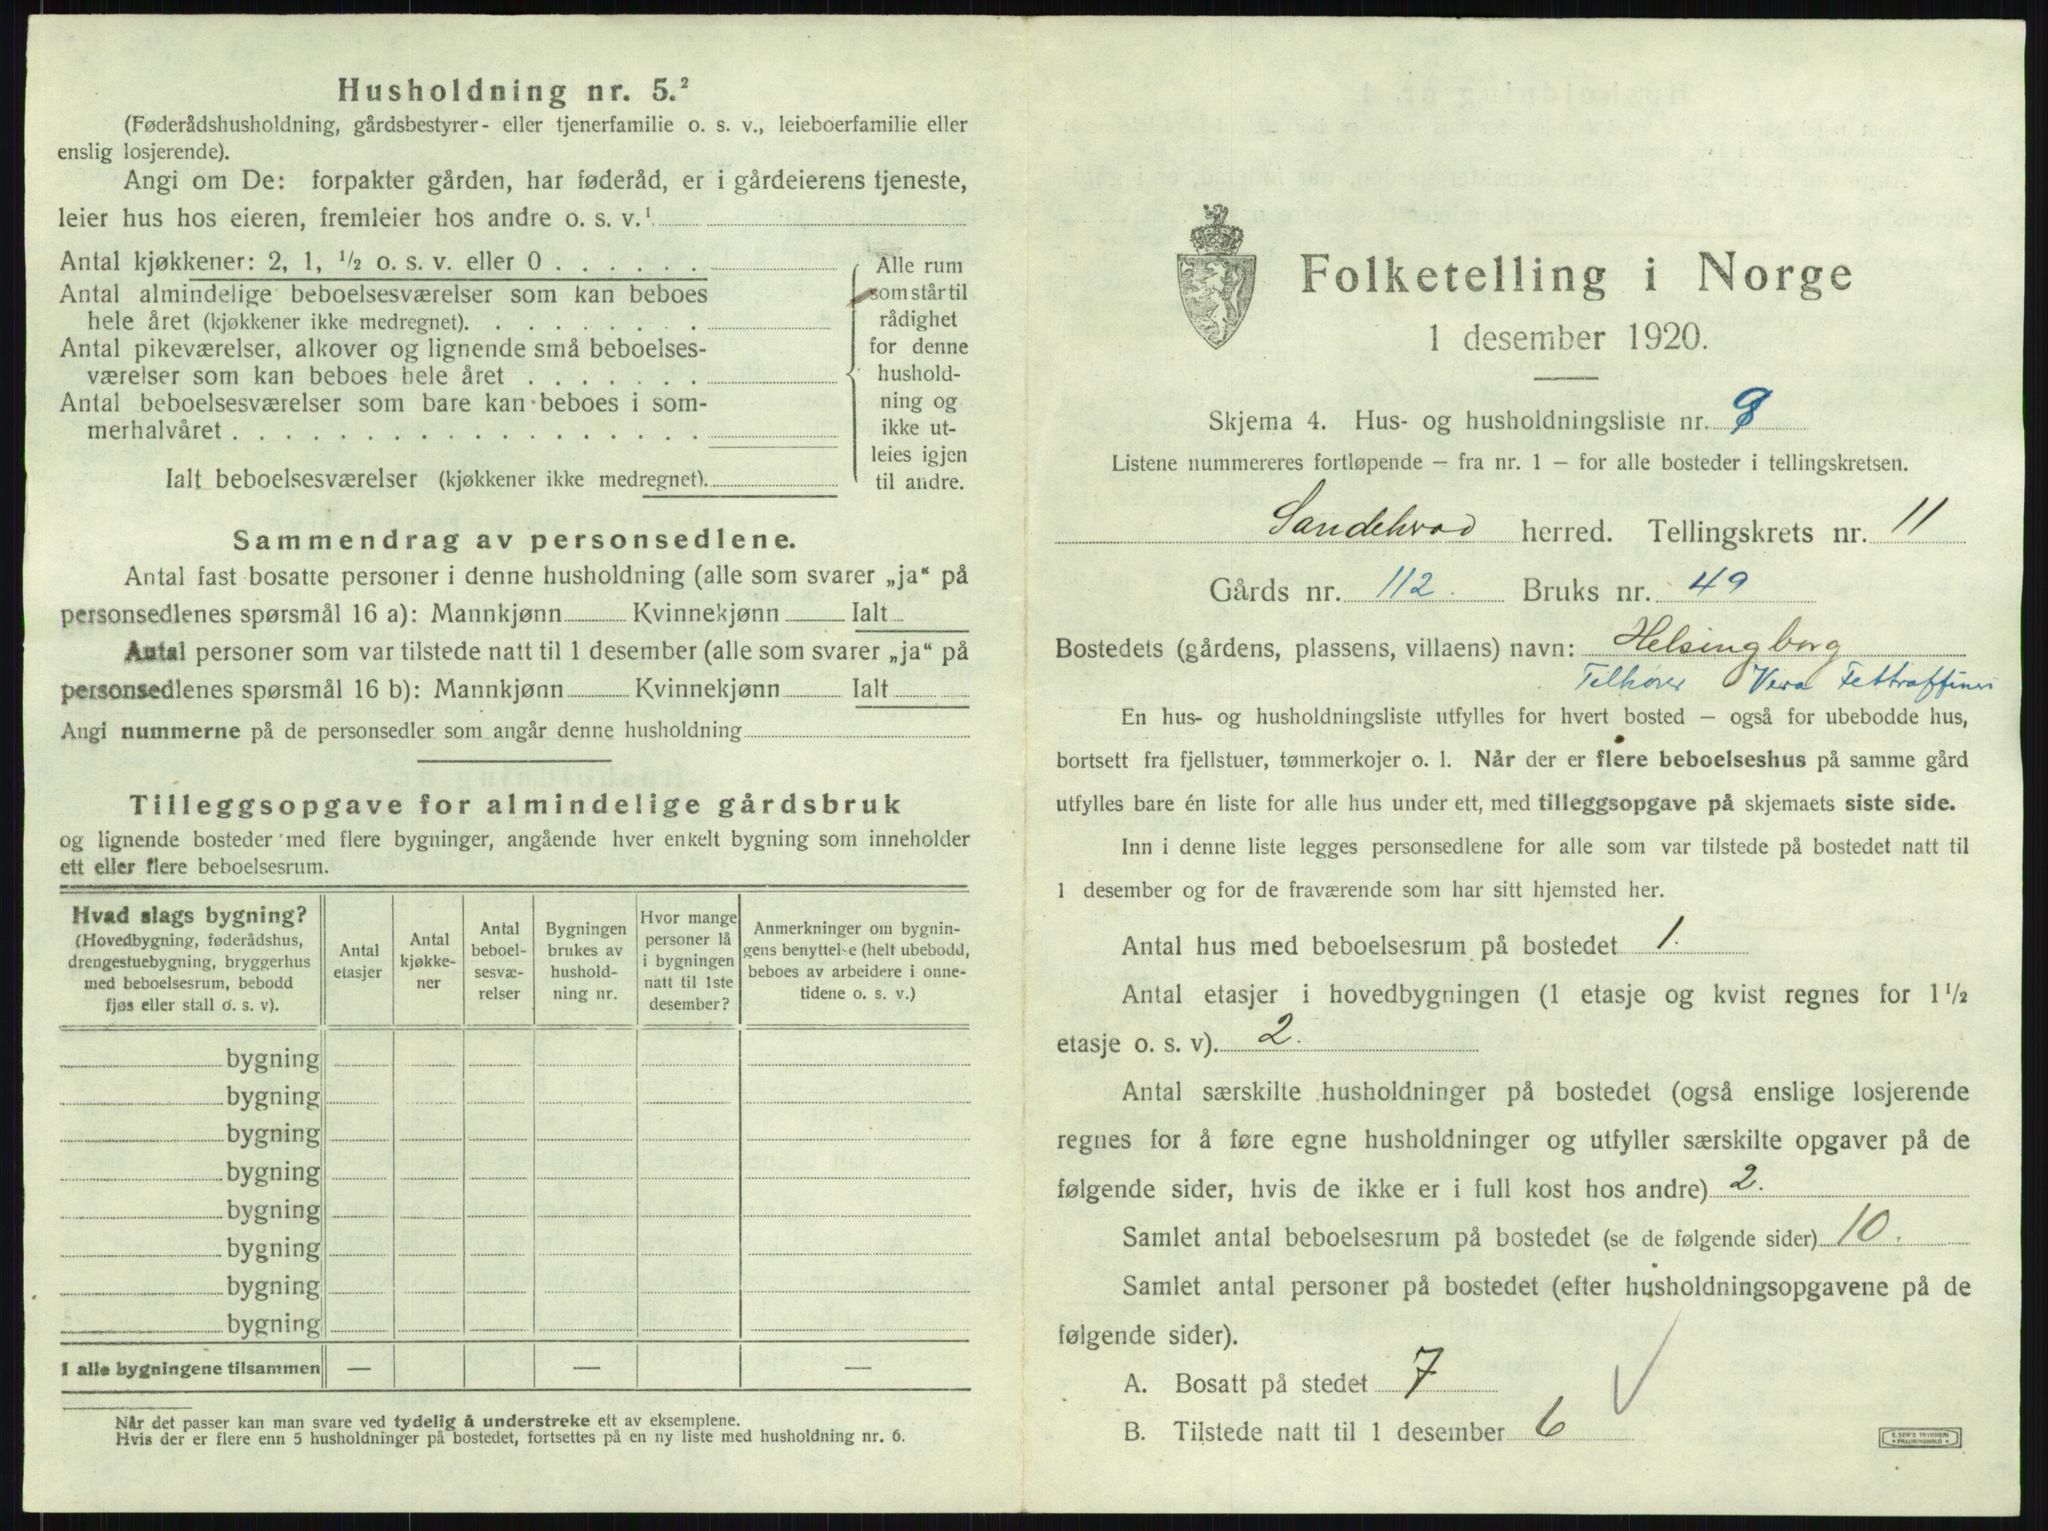 Husholdning nr. 5.²
(Føderådshusholdning, gårdsbestyrer- eller tjenerfamilie o. s. v., leieboerfamilie eller
enslig losjerende).
Angi om De: forpakter gården, har føderåd, er i gårdeierens tjeneste,
leier hus hos eieren, fremleier hos andre o. s. v.¹
Antal kjøkkener: 2, 1, ½ o. s. v. eller 0
Antal almindelige beboelsesværelser som kan beboes
hele året (kjøkkener ikke medregnet).
Antal pikeværelser, alkover og lignende små beboelses-
værelser som kan beboes hele året
Antal beboelsesværelser som bare kan beboes i som-
merhalvåret
Ialt beboelsesværelser (kjøkkener ikke medregnet).
Alle rum
som står til
rådighet
for denne
hushold-
ning og
ikke ut-
leies igjen
til andre.
Sammendrag av personsedlene.
Antal fast bosatte personer i denne husholdning (alle som svarer „ja“ på
personsedlenes spørsmål 16 a): Mannkjønn Kvinnekjønn Ialt
Antal personer som var tilstede natt til 1 desember (alle som svarer „ja“ på
personsedlenes spørsmål 16 b): Mannkjønn Kvinnekjønn Ialt
Angi nummerne på de personsedler som angår denne husholdning
Tilleggsopgave for almindelige gårdsbruk
og lignende bosteder med flere bygninger, angående hver enkelt bygning som inneholder
ett eller flere beboelsesrum.
Hvad slags bygning?
(Hovedbygning, føderådshus,
drengestuebygning, bryggerhus
med beboelsesrum, bebodd
fjøs eller stall o. s. v).
Antal
etasjer
Antal
kjøkke-
ner
Antal
beboel-
sesvæ-
relser
Bygningen
brukes av
hushold-
ning nr.
Hvor mange
personer lå
i bygningen
natt til 1ste
desember?
Anmerkninger om bygnin-
gens benyttelse (helt ubebodd,
beboes av arbeidere i onne-
tidene o. s. v.)
bygning
bygning
bygning
bygning
bygning
bygning
bygning
bygning
I alle bygningene tilsammen — — —
Når det passer kan man svare ved tydelig å understreke ett av eksemplene.
Hvis der er flere enn 5 husholdninger på bostedet, fortsettes på en ny liste med husholdning nr. 6.
Folketelling i Norge
1 desember 1920.
Skjema 4. Hus- og husholdningsliste nr.
Listene nummereres fortløpende – fra nr. 1 – for alle bosteder i tellingskretsen.
Sandehvad herred. Tellingskrets nr. 11
Gårds nr. 112. Bruks nr. 49
Bostedets (gårdens, plassens, villaens) navn: Helsingborg
Tilhører Vera
En hus- og husholdningsliste utfylles for hvert bosted – også for ubebodde hus,
bortsett fra fjellstuer, tømmerkojer o. l. Når der er flere beboelseshus på samme gård
utfylles bare én liste for alle hus under ett, med tilleggsopgave på skjemaets siste side.
Inn i denne liste legges personsedlene for alle som var tilstede på bostedet natt til
1 desember og for de fraværende som har sitt hjemsted her.
Antal hus med beboelsesrum på bostedet 1.
Antal etasjer i hovedbygningen (1 etasje og kvist regnes for 1 ½
etasje o. s. v). 2.
Antal særskilte husholdninger på bostedet (også enslige losjerende
regnes for å føre egne husholdninger og utfyller særskilte opgaver på de
følgende sider, hvis de ikke er i full kost hos andre) 2.
Samlet antal beboelsesrum på bostedet (se de følgende sider) 10.
Samlet antal personer på bostedet (efter husholdningsopgavene på de
følgende sider).
A. Bosatt på stedet 7
B. Tilstede natt til 1 desember 6